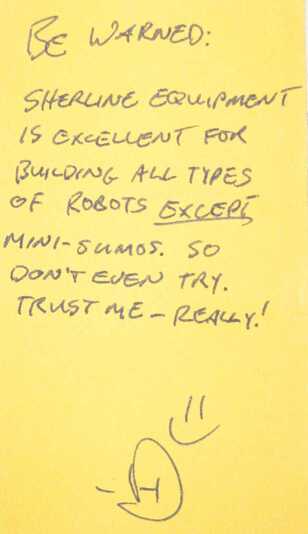 BE WARNED:
SHERLINE EQUIPMENT
IS EXCELLENT FOR
BUILDING ALL TYPES
OF ROBOTS EXCEPT
MINI-SUMOS. SO
DON'T EVEN TRY.
TRUST ME - REALLY!